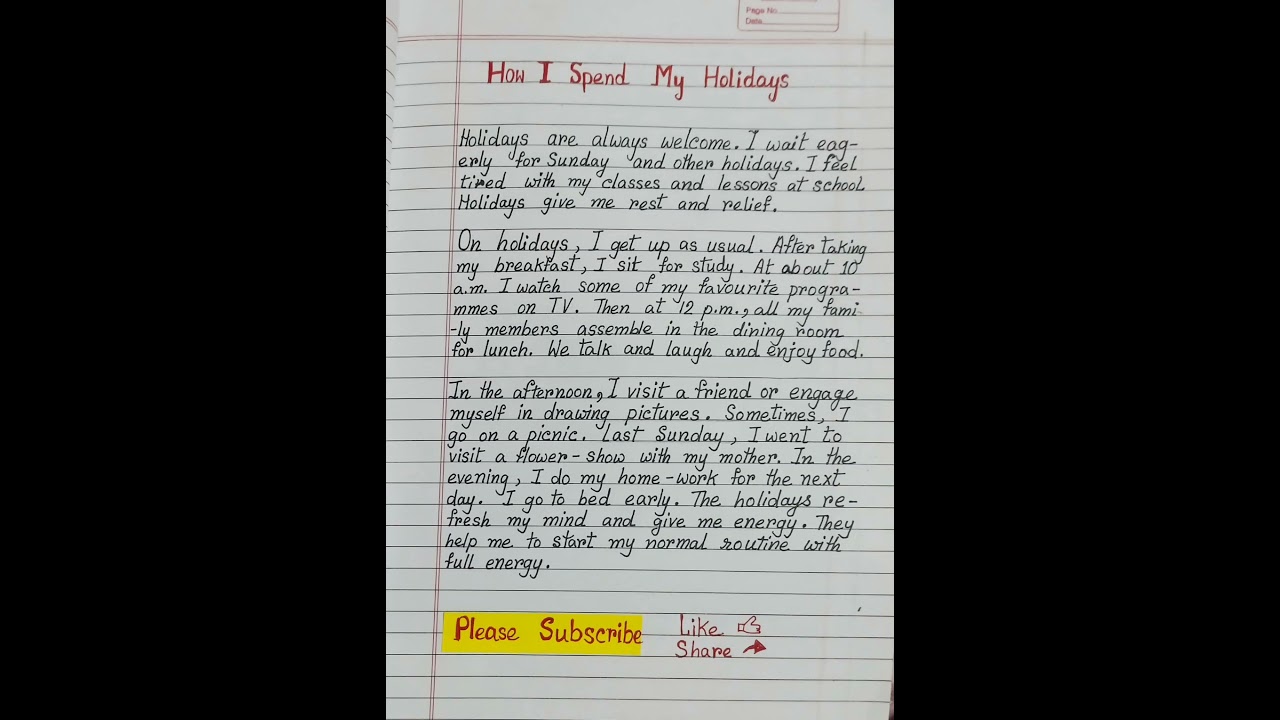 Page No.
Date
How I Spend My Holidays
Holidays are always welcome. I wait eag-
erly for Sunday and other holidays. I feel
tired with my classes and lessons at school
Holidays give me rest and relief.
On holidays, I get up as usual. After taking
my breakfast, I sit for study. At about 10
a.m. I watch some of my favourite progra-
mmes on TV. Then at 12 p.m., all my fami-
-ly members assemble in the dining room
for lunch. We talk and laugh and enjoy food.
In the afternoon, I visit a friend or engage
myself in drawing pictures. Sometimes, I
go on a picnic. Last Sunday, I went to
visit a flower-show with my mother. In the
evening, I do my home-work for the next
day. I go to bed early. The holidays re-
fresh my mind and give me energy. They
help me to start my normal routine with
full energy.
Please Subscribe
Like
Share